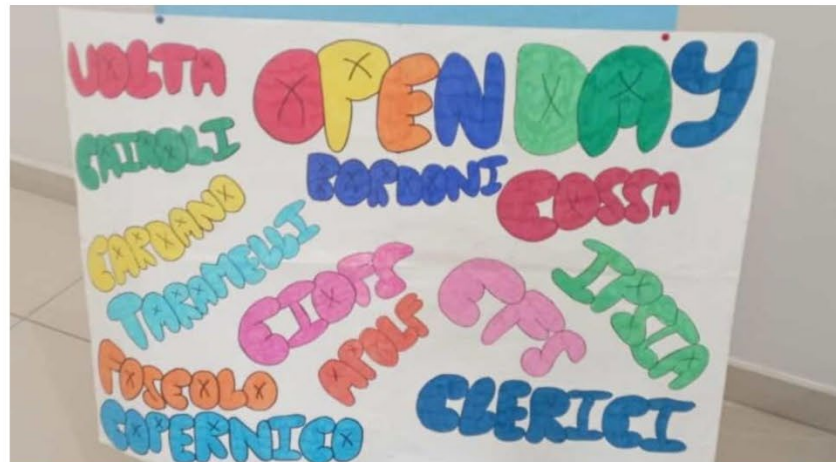 VOLTA
OPEN DAY
CAIROLI
BORDONI
COSSA
CARDANO
TARAMELLI
CIOFS
CFS
IPSIA
APOLF
FOSCOLO
CLERICI
COPERNICO